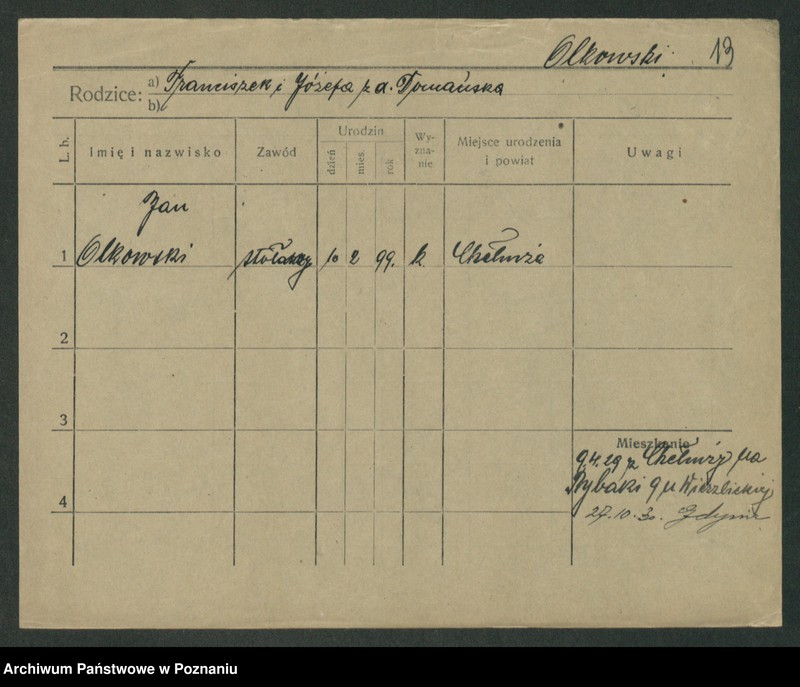 Olkowski 13
Rodzice: a) Franciszek i Józefa z d. Tomańska
b)
L. b.
Imię i nazwisko
Zawód
Urodzin
dzień
mies.
rok
Wy-
zna-
nie
Miejsce urodzenia
i powiat
Uwagi
Jan
1 Olkowski stolarz 10 2 99. k. Chełmża
2
3
Mieszkanie
9.4.29 z Chełmży na
Rybaki 9 u Wierzbickiej
4
27.10.30. Gdynia
Archiwum Państwowe w Poznaniu